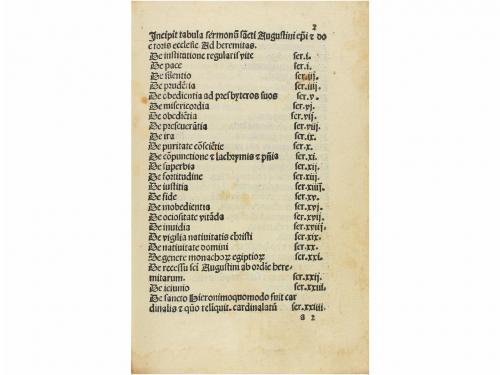 2
Incipit tabula sermonū sācti Augustini epi ⁊ do
ctoris ecclesie Ad heremitas.
De institutione regularis vite ser.i.
De pace ser.i.
De silentio ser.iij.
De prudētia ser.iiij.
De obedientia ad presbyteros suos ser.v.
De misericordia ser.vj.
De obediētia ser.vij.
De perseuerātia ser.viij.
De ira ser.ix.
De puritate cōsciētie ser.x.
De cōpunctione ⁊ lachrymis ⁊ pn̄ia ser.xi.
De superbia ser.xij.
De fortitudine ser.xiij.
De iustitia ser.xiiij.
De fide ser.xv.
De inobedientia ser.xvj.
De ociositate vitāda ser.xvij.
De inuidia ser.xviij.
De vigilia natiuitatis christi ser.xix.
De natiuitate domini ser.xx.
De genere monachoꝝ egiptioꝝ ser.xxi.
De recessu sci Augustini ab ordīe here-
mitarum. ser.xxij.
De ieiunio ser.xxiii.
De sancto Hieronimo quomodo fuit car
dinalis ⁊ quō reliquit. cardinalatū ser.xxiiii.
a 2